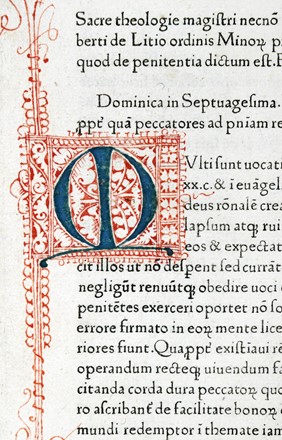 Sacre theologie magiſtri necnō
berti de Litio ordinis Minoꝝ p
quod de penitentia dictum eſt. F
Dominica in Septuageſima.
ppt̄ quā peccatores ad pniam re
MVlti ſunt uocati
xx.c. & i euāgel
deus rōnale crea
lapſum atꝗ rui
eos & expectat
cit illos ut nō deſpent ſed currāt
negligūt renuūtꝗ obedire uoci
penitētes exerceri oportet nō ſo
errore firmato in eoꝝ mente lice
riores fiunt. Quappt̄ exiſtiaui rē
operandum recteꝗ uiuendum fa
citanda corda dura peccatoꝝ quo
ro aſcribant̄ de facilitate bonoꝝ
mundi redemptor i themate iam